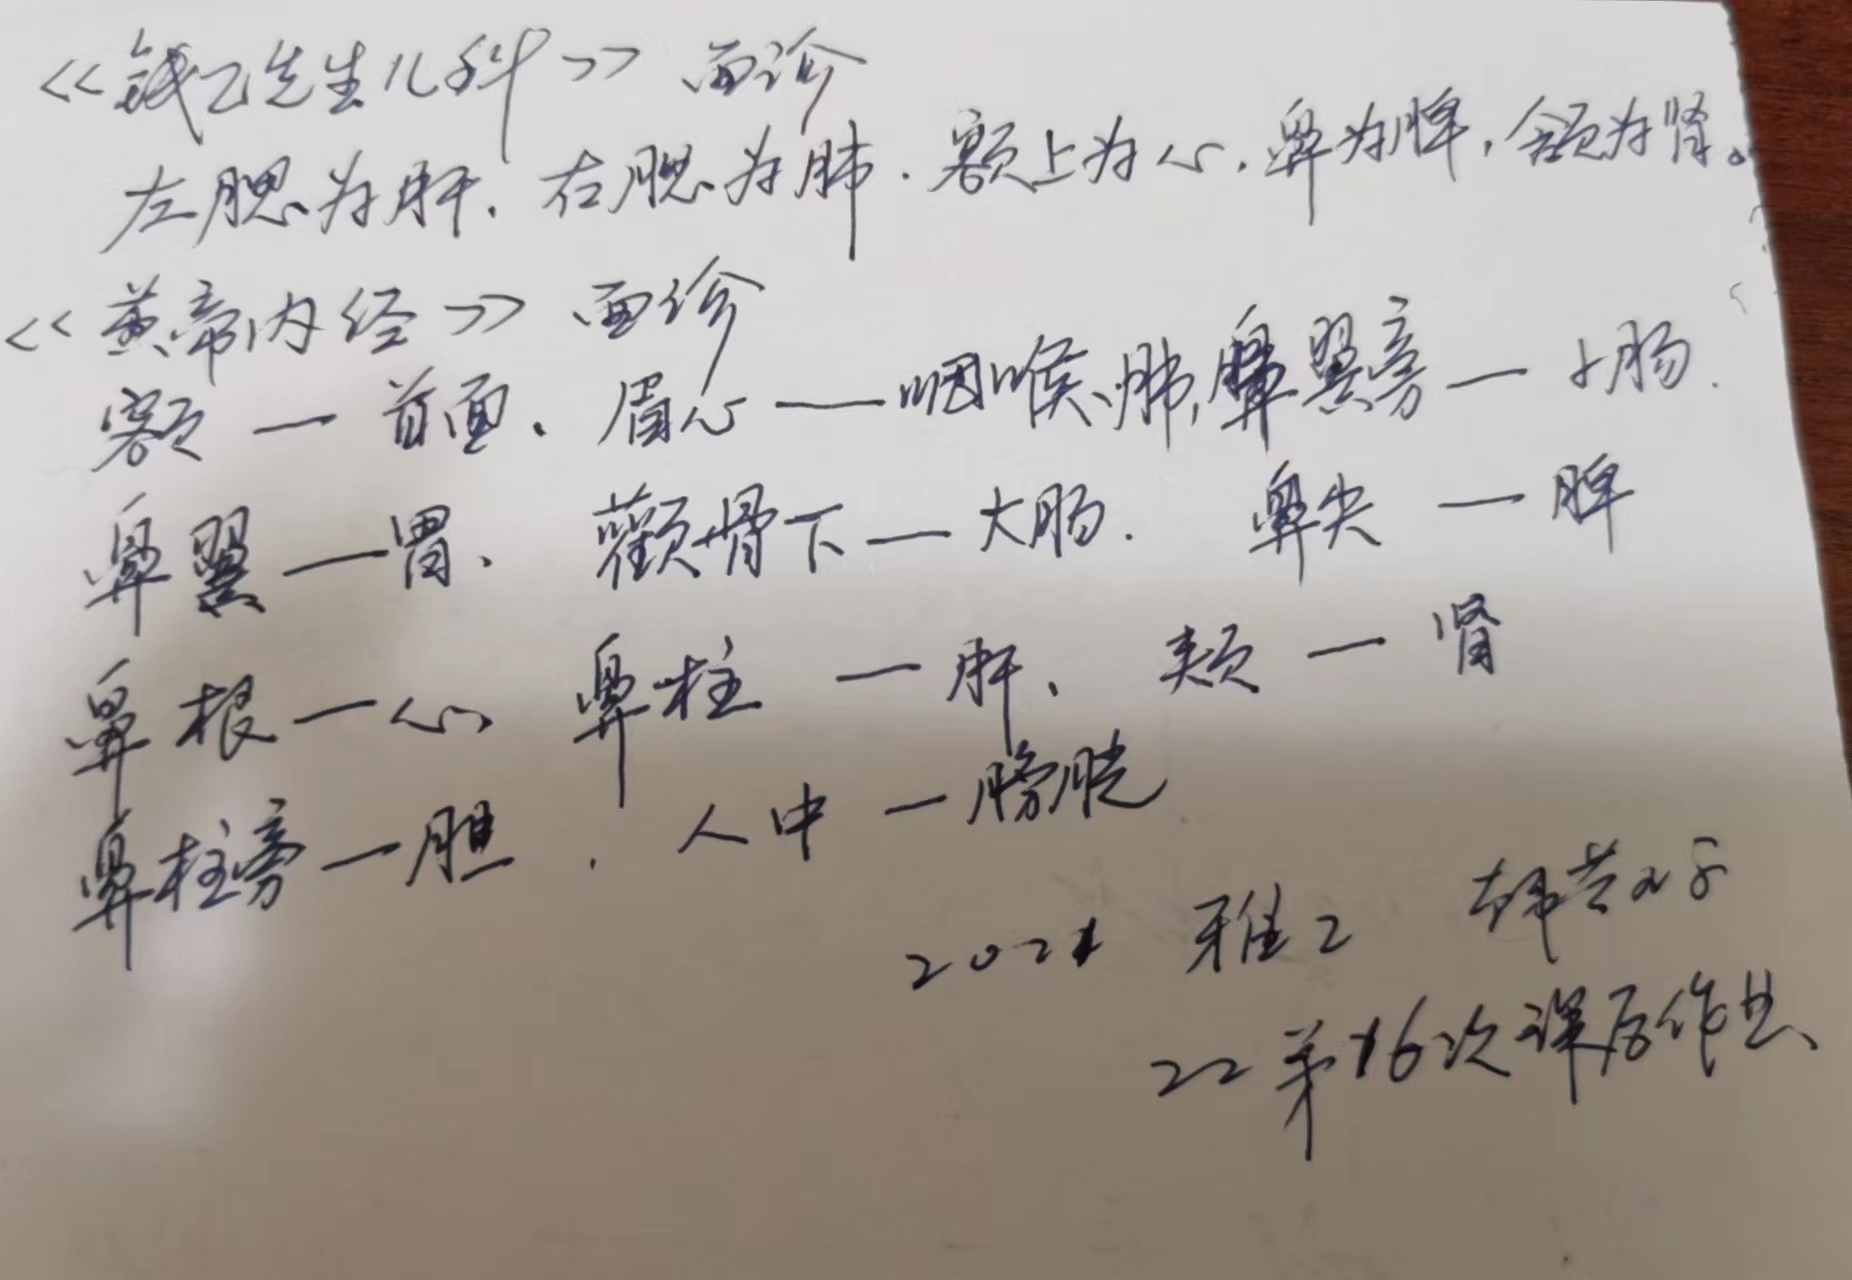 《钱乙先生儿科》 面诊
左腮为肝、右腮为肺.额上为心,鼻为脾,颌为肾。
《黄帝内经》 面诊
额一首面、眉心—咽喉、肺,鼻翼旁—小肠.
鼻翼—胃、颧骨下—大肠. 鼻尖—脾
鼻根—心、鼻柱—肝、颊—肾
鼻柱旁—胆.人中—膀胱
2021 雅2 韩芸
22第16次课后作业